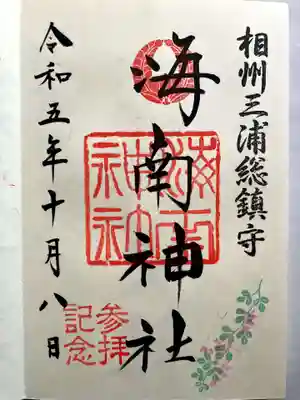 相州三浦総鎮守
海南神社
海南神社
令和五年十月八日
参拝
記念